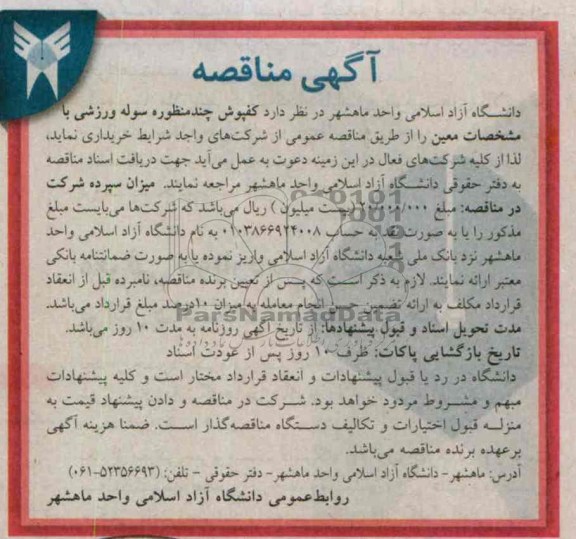 آگهی مناقصه
دانشگاه آزاد اسلامی واحد ماهشهر در نظر دارد کفپوش چندمنظوره سوله ورزشی با
مشخصات معین را از طریق مناقصه عمومی از شرکت‌های واجد شرایط خریداری نماید،
لذا از کلیه شرکت‌های فعال در این زمینه دعوت به عمل می‌آید جهت دریافت اسناد مناقصه
به دفتر حقوقی دانشگاه آزاد اسلامی واحد ماهشهر مراجعه نمایند. میزان سپرده شرکت
در مناقصه: مبلغ میلیون ) ریال می‌باشد که شرکت‌ها می‌بایست مبلغ
مذکور را یا به صورت نقد به حساب ۰۱۰۳۸۶۶۹۲۴۰۰۸ به نام دانشگاه آزاد اسلامی واحد
ماهشهر نزد بانک ملی شعبه دانشگاه آزاد اسلامی واریز نموده یا به صورت ضمانتنامه بانکی
معتبر ارائه نمایند. لازم به ذکر است که پس از تعیین برنده مناقصه، نامبرده قبل از انعقاد
قرارداد مکلف به ارائه تضمین حسن انجام معامله به میزان ۱۰درصد مبلغ قرارداد می‌باشد.
ParsNamadData
مدت تحویل اسناد و قبول پیشنهادها: از تاریخ آگهی روزنامه به مدت ۱۰ روز می‌باشد.
تاریخ بازگشایی پاکات: ظرف ۱۰ روز پس از عودت اسناد
دانشگاه در رد یا قبول پیشنهادات و انعقاد قرارداد مختار است و کلیه پیشنهادات
مبهم و مشروط مردود خواهد بود. شرکت در مناقصه و دادن پیشنهاد قیمت به
منزله قبول اختیارات و تکالیف دستگاه مناقصه‌گذار است. ضمنا هزینه آگهی
برعهده برنده مناقصه می‌باشد.
آدرس: ماهشهر- دانشگاه آزاد اسلامی واحد ماهشهر- دفتر حقوقی - تلفن: (۵۲۳۵۶۶۹۳-۰۶۱)
روابط‌عمومی دانشگاه آزاد اسلامی واحد ماهشهر